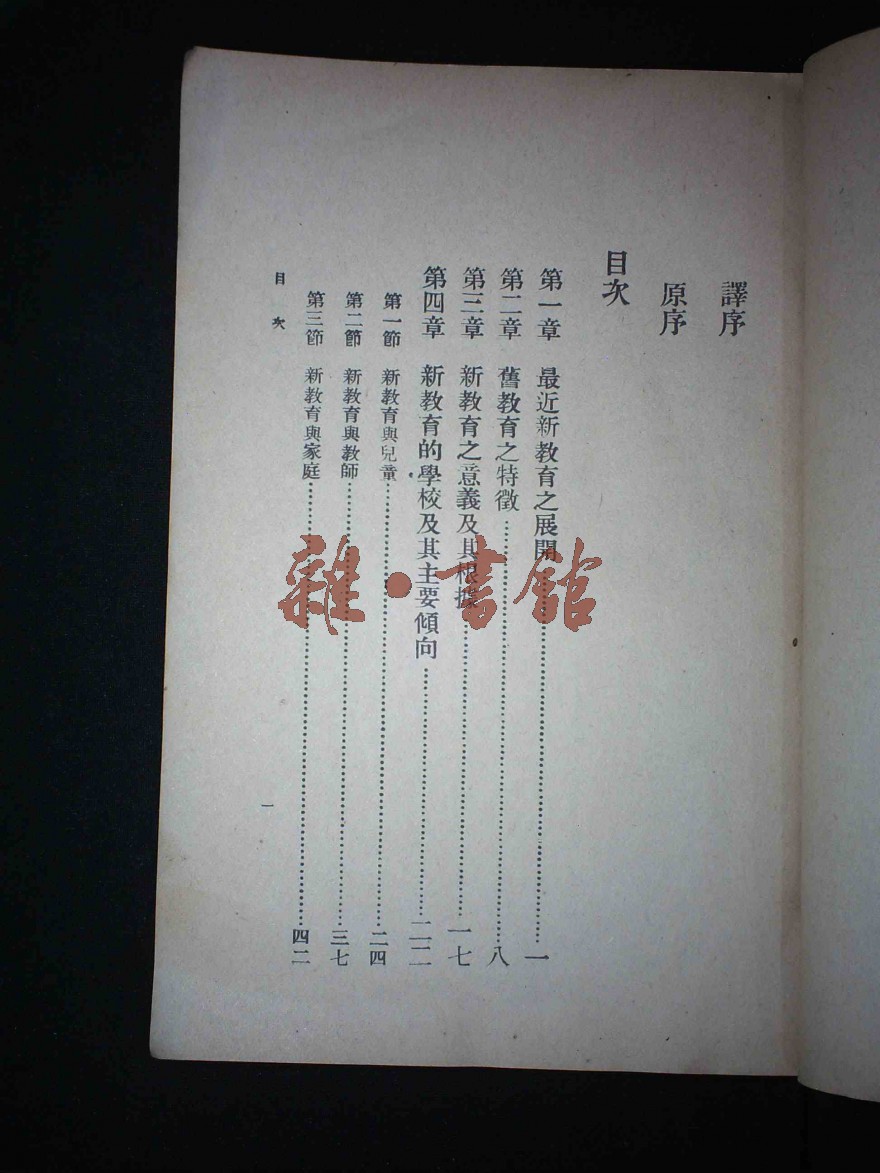 譯序
原序
目次
第一章 最近新教育之展開……一
第二章 舊教育之特徵……八
第三章 新教育之意義及其根據……一七
第四章 新教育的學校及其主要傾向……二二
第一節 新教育與兒童……二四
第二節 新教育與教師……三七
第三節 新教育與家庭……四二
目次
一
雜·書館